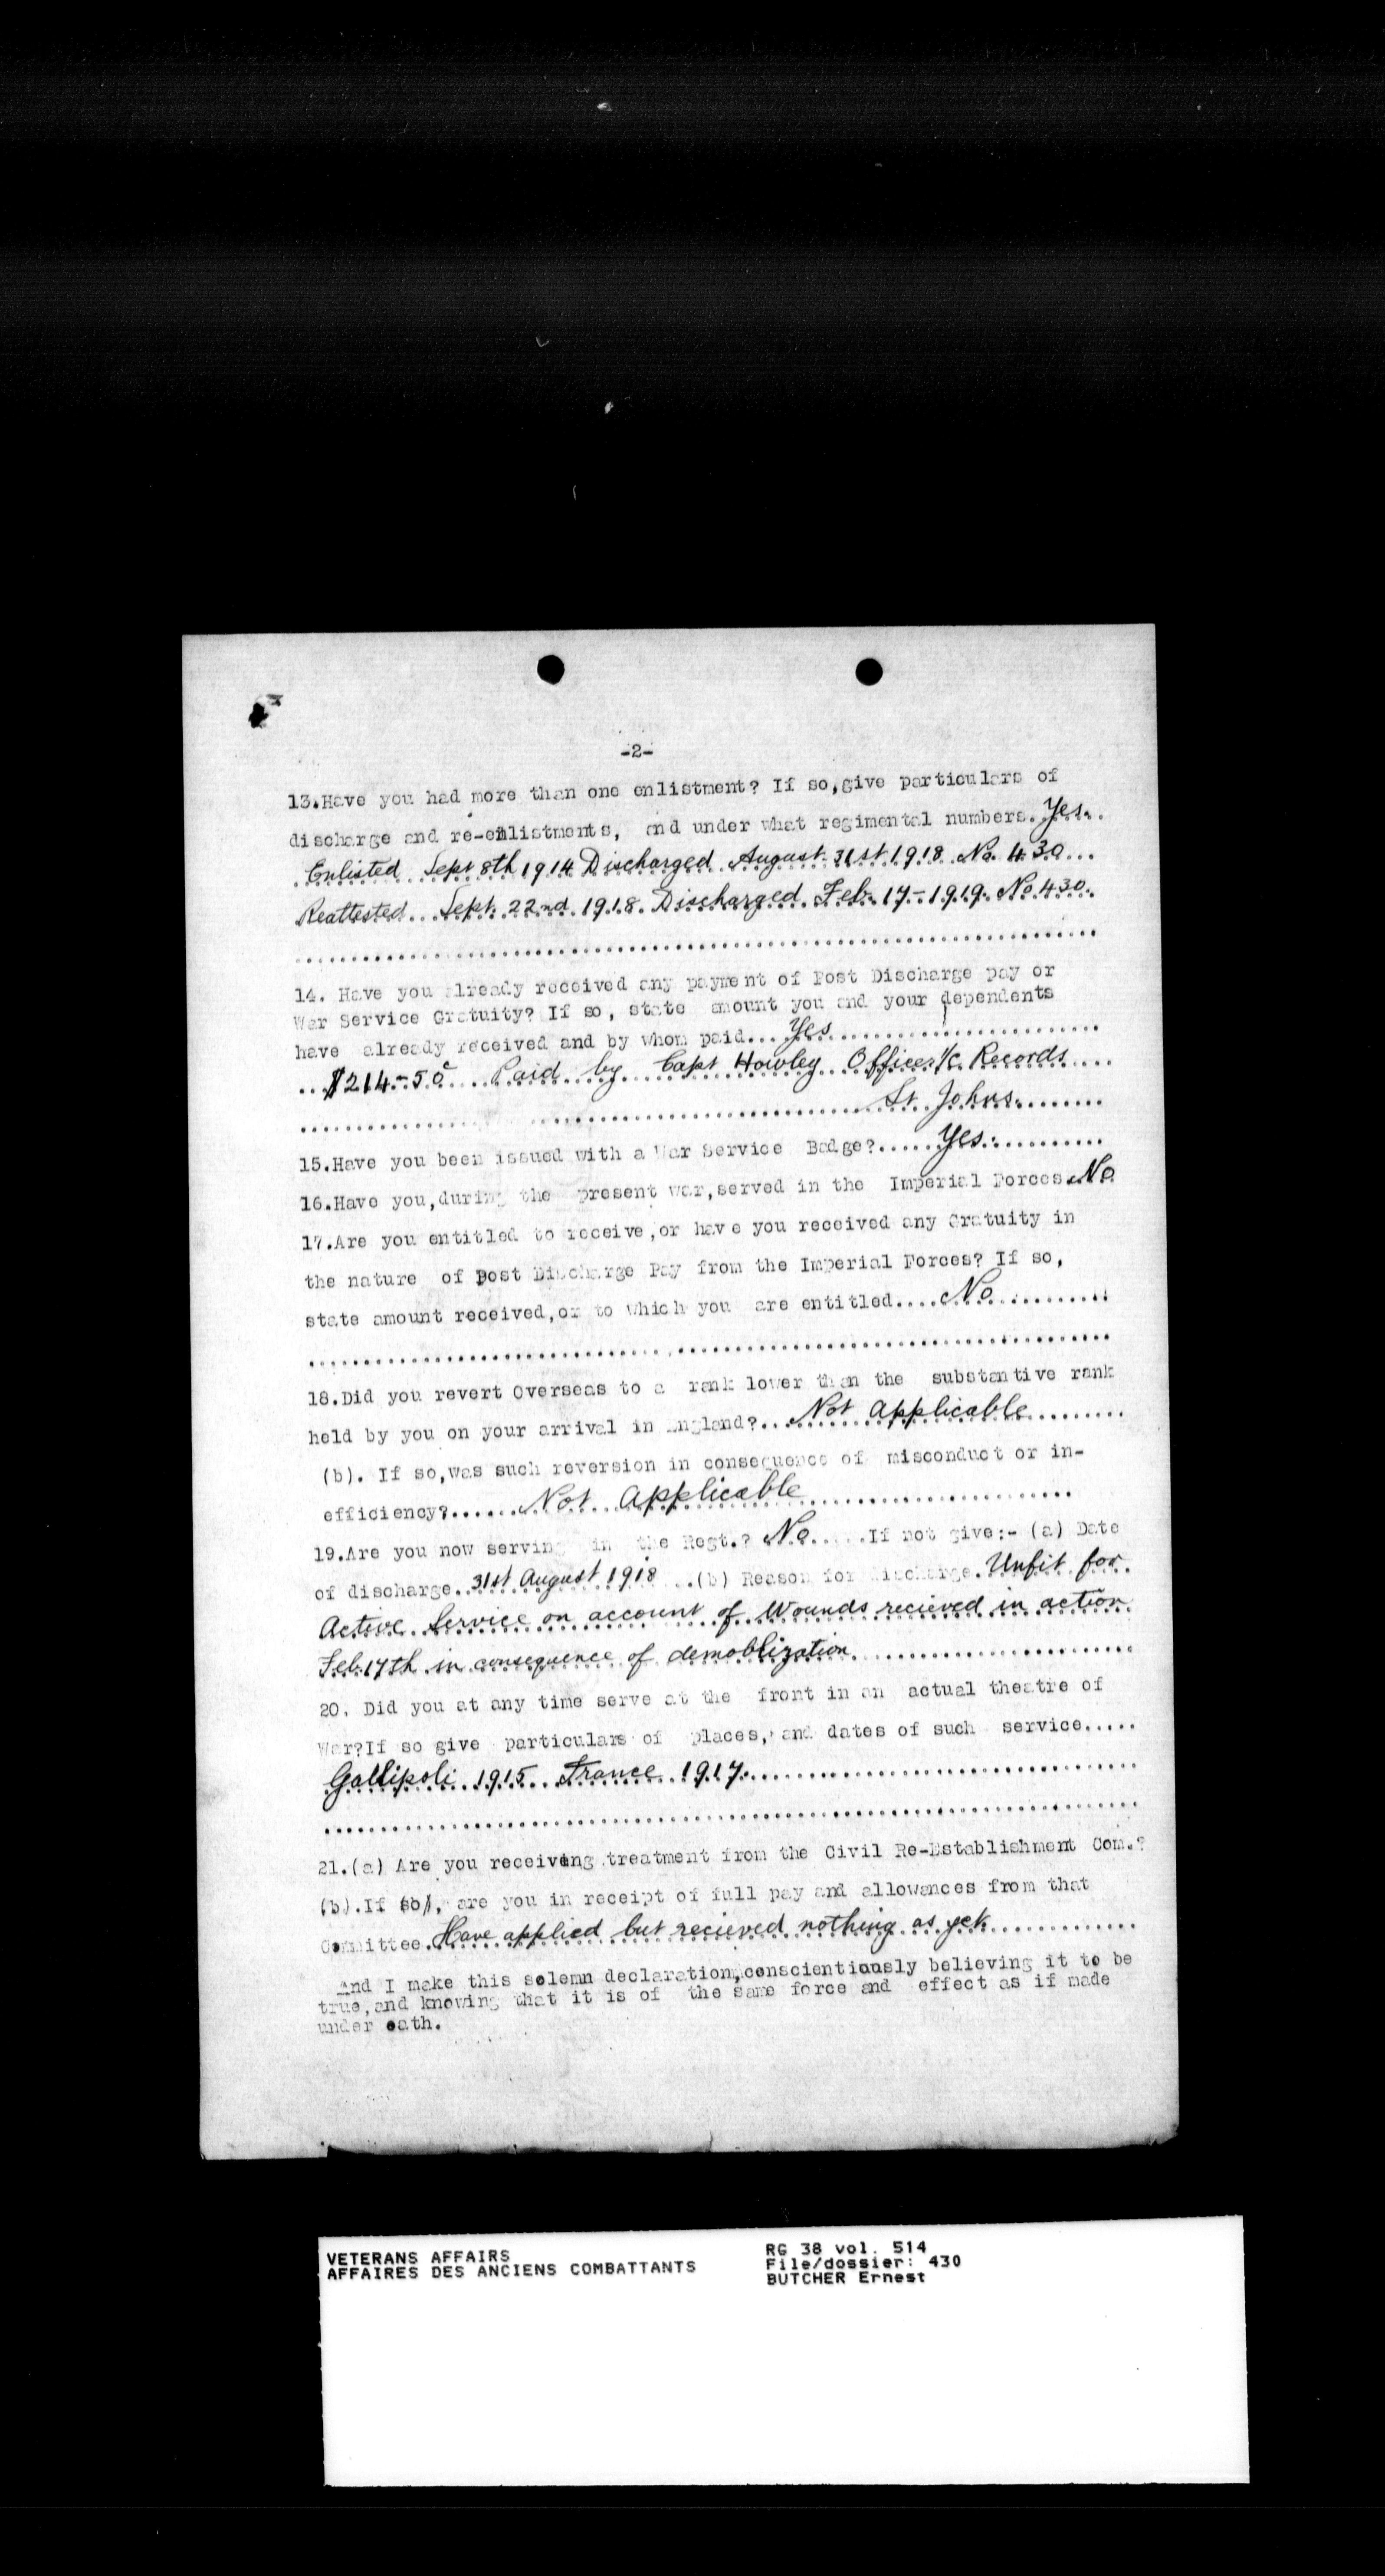 -2-
13.Have you had more than one enlistment? If so,give particulars of
discharge and re-enlistments, and under what regimental numbers. Yes..
Enlisted Sept 8th 1914 Discharged August 31st 1918 No. 430...
Reattested... Sept. 22nd. 1918. Discharged. Feb. 17-1919. No 430.
14. Have you already received any payment of Post Discharge pay or
War Service Gratuity? If so, state amount you and your dependents
have already received and by whom paid... Yes
...$214.-50c Paid by Capt Howley Officer i/c Records....
St Johns.
15.Have you been issued with a War Service Badge?..... Yes.
16.Have you,during the present war,served in the Imperial Forces. No
17.Are you entitled to receive,or have you received any Gratuity in
the nature of Post Discharge Pay from the Imperial Forces? If so,
state amount received,or to which you are entitled.... No
18.Did you revert Overseas to a rank lower than the substantive rank
held by you on your arrival in England?... Not applicable
(b). If so,was such reversion in consequence of misconduct or in-
efficiency?...... Not applicable
19.Are you now serving in the Regt.? No .....If not give:- (a) Date
of discharge.. 31st August 1918 ..(b) Reason for discharge. Unfit for
Active Service on account of Wounds recieved in action
Feb. 17th in consequence of demoblization.
20. Did you at any time serve at the front in an actual theatre of
War?If so give particulars of places, and dates of such service.....
Gallipoli 1915 France 1917.
21.(a) Are you receiving treatment from the Civil Re-Establishment Com.?
(b).If so, are you in receipt of full pay and allowances from that
Committee. Have applied but recieved nothing as yet.
And I make this solemn declaration,conscientiously believing it to be
true,and knowing that it is of the same force and effect as if made
under oath.
VETERANS AFFAIRS
AFFAIRES DES ANCIENS COMBATTANTS
RG 38 vol. 514
File/dossier: 430
BUTCHER Ernest